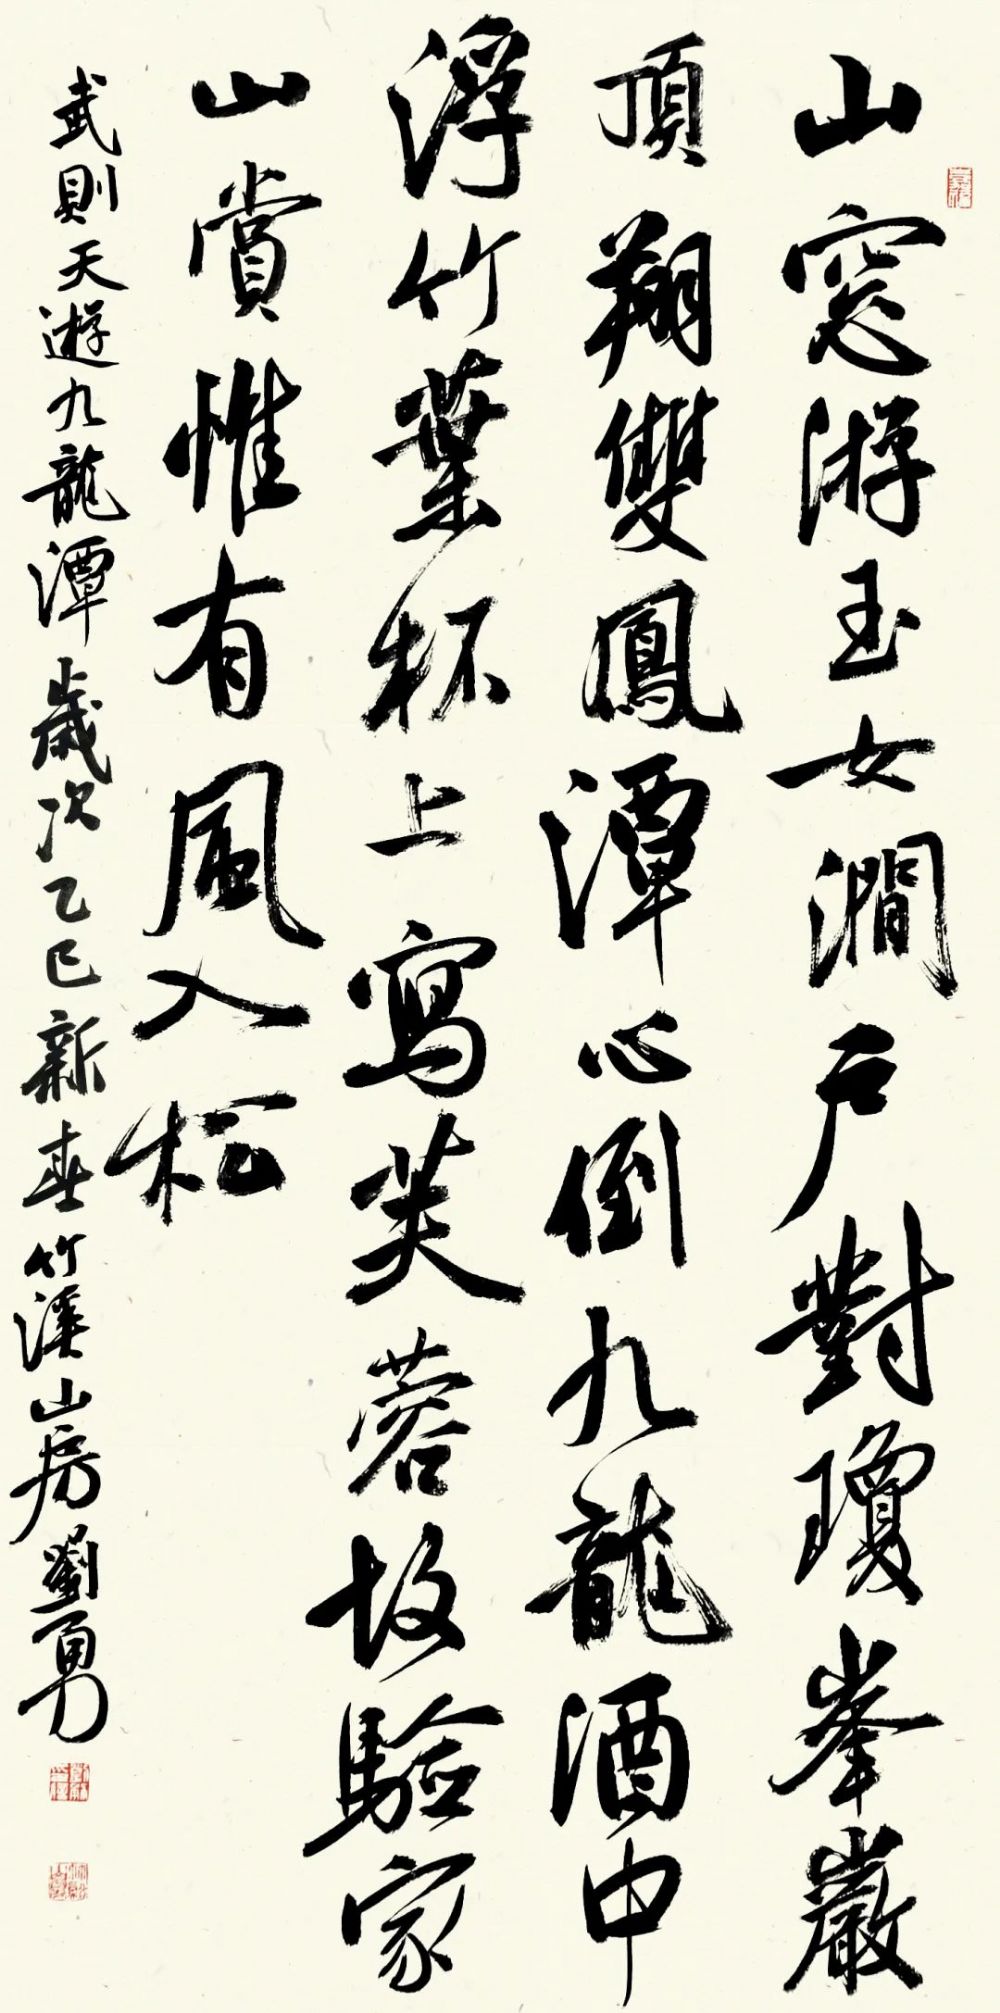 山窓游玉女澗戶對瓊峯巖
頂翔雙鳳潭心倒九龍酒中
浮竹葉杯上寫芙蓉故驗家
山賞惟有風入松
武則天遊九龍潭歲次乙巳新春竹溪山房劉勇